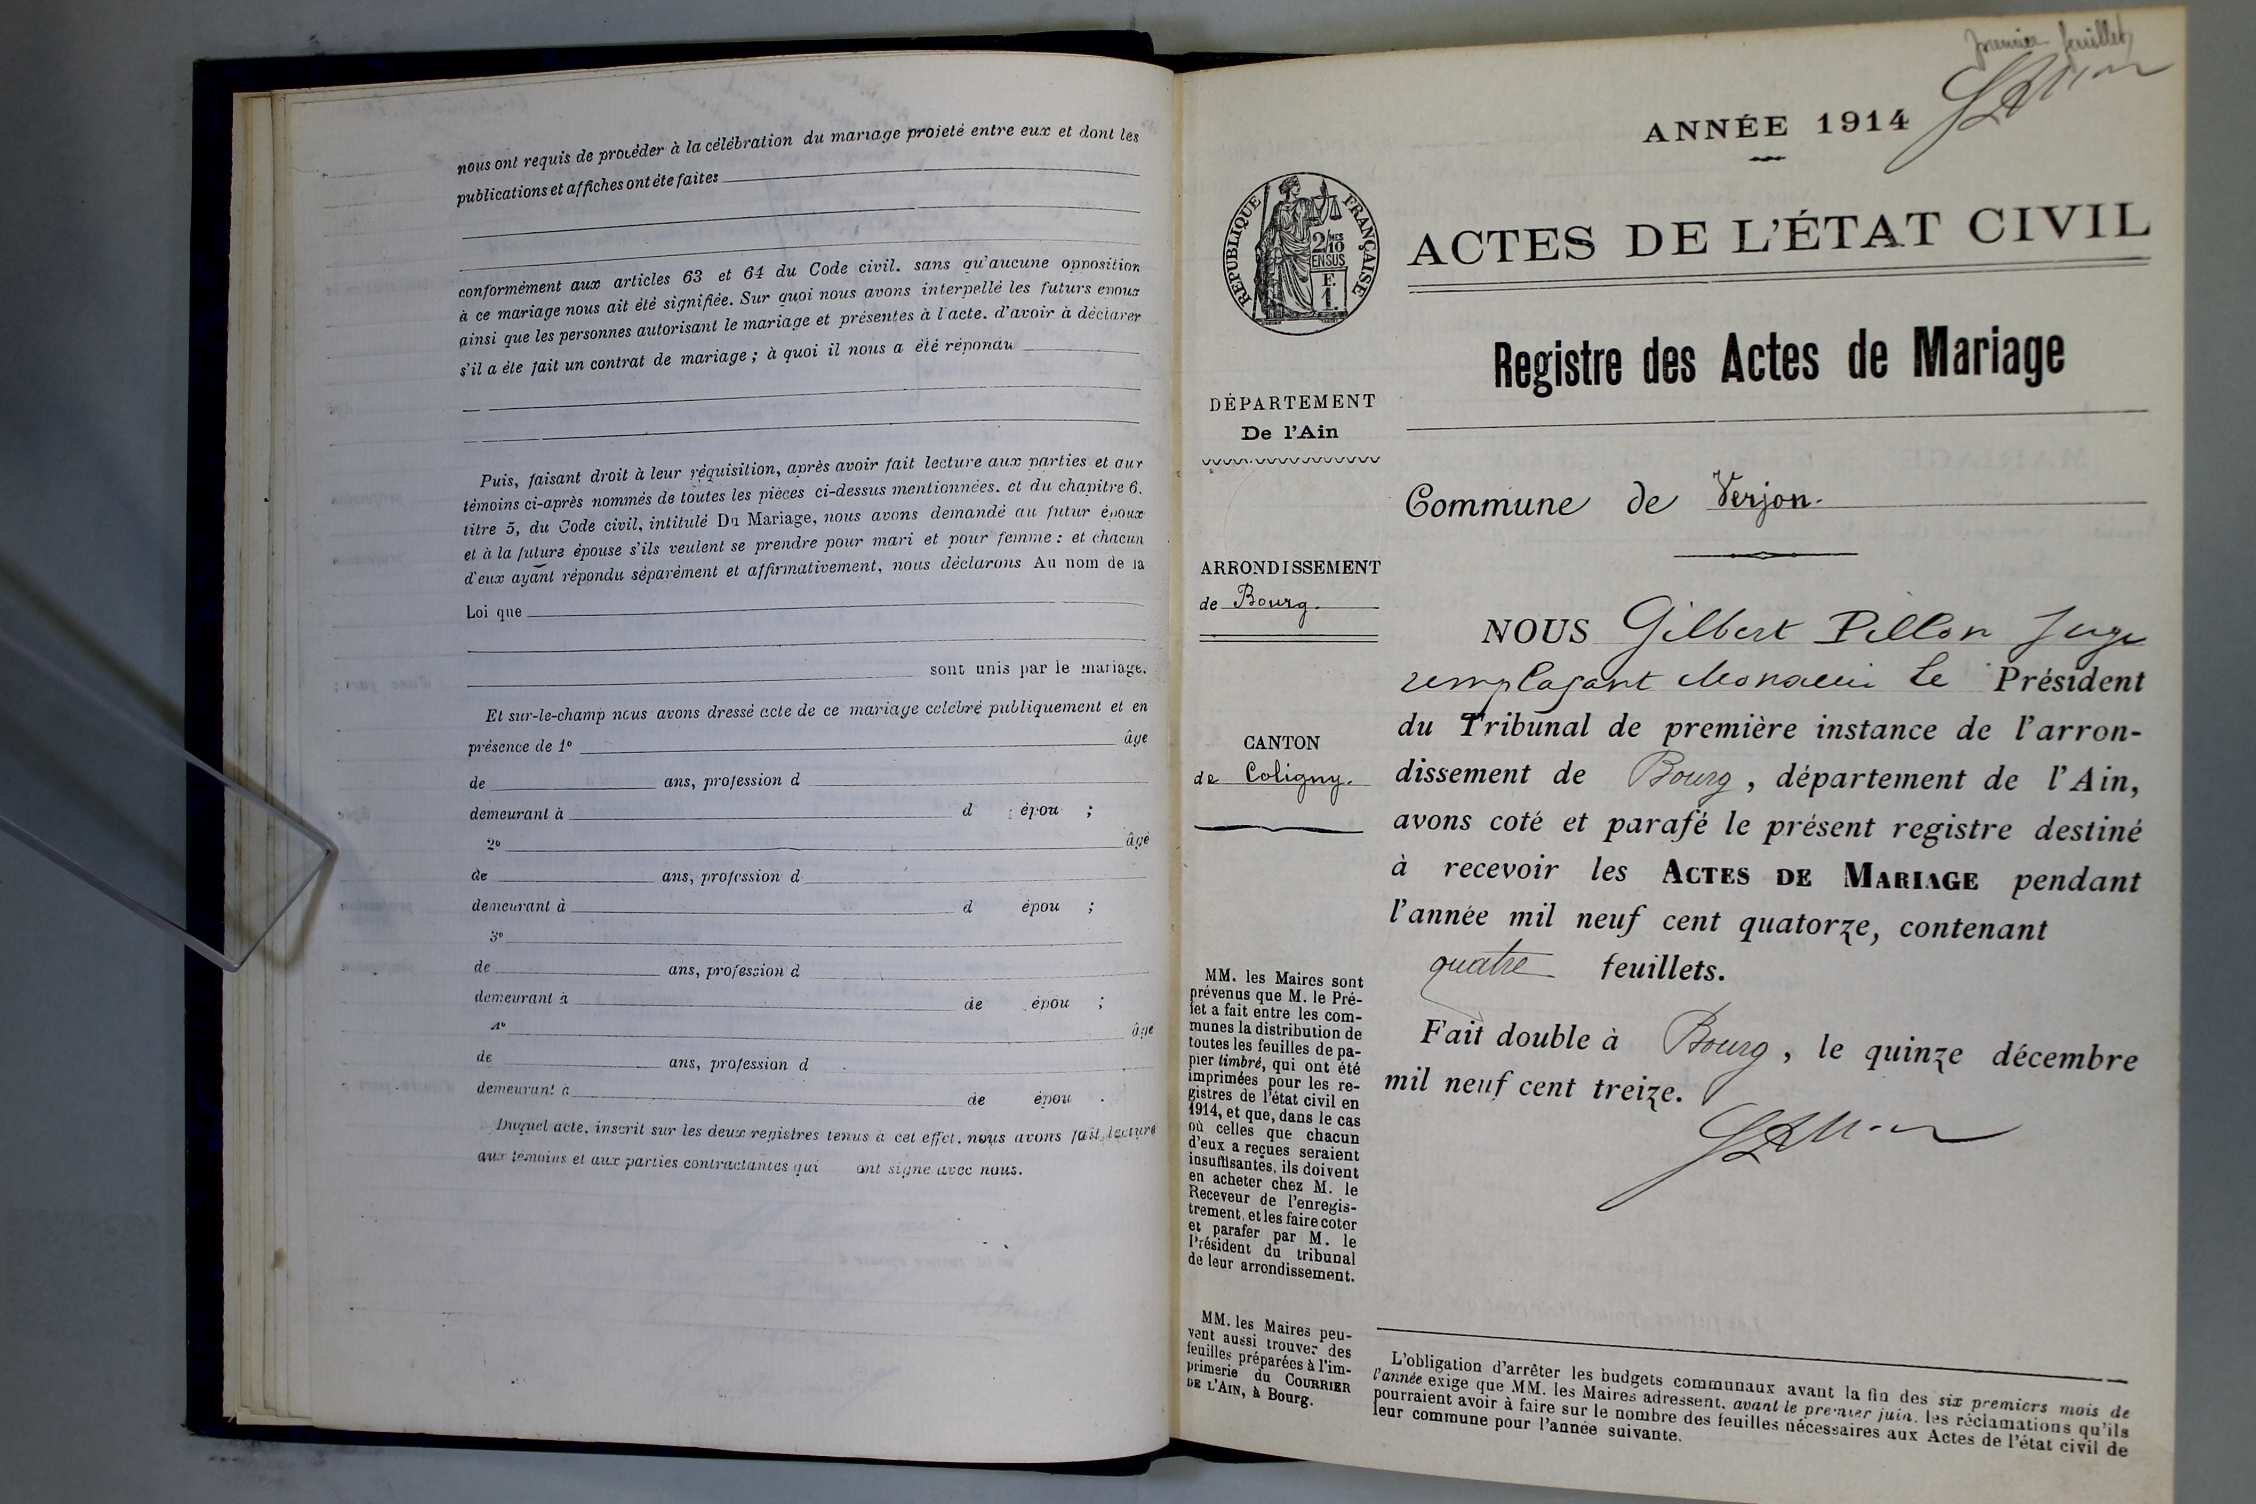 nous ont requis de procéder à la célébration du mariage projeté entre eux et dont les
publications et affiches ont été faites
conformément aux articles 63 et 64 du Code civil. sans qu'aucune opposition
à ce mariage nous ait été signifiée. Sur quoi nous avons interpellé les futurs époux
ainsi que les personnes autorisant le mariage et présentes à l'acte. d'avoir à déclarer
s'il a été fait un contrat de mariage ; à quoi il nous a été répondu
Puis, faisant droit à leur réquisition, après avoir fait lecture aux parties et aux
témoins ci-après nommés de toutes les pièces ci-dessus mentionnées. et du chapitre 6.
titre 5, du Code civil, intitulé Du Mariage, nous avons demandé au futur époux
et à la future épouse s'ils veulent se prendre pour mari et pour femme : et chacun
d'eux ayant répondu séparément et affirmativement, nous déclarons Au nom de la
Loi que
sont unis par le mariage.
Et sur-le-champ nous avons dressé acte de ce mariage célébré publiquement et en
présence de 1º âge
de ans, profession d
demeurant à d épou ;
2º âgé
de ans, profession d
demeurant à d épou ;
3º
de ans, profession d
demeurant à de épou ;
4º âge
de ans, profession d
demeurant à de épou .
Duquel acte, inscrit sur les deux registres tenus à cet effet. nous avons fait lecture
aux témoins et aux parties contractantes qui ont signé avec nous.
premier feuillet
ANNÉE 1914
RÉPUBLIQUE FRANÇAISE
2/10 MES
EN SUS
F.
1.
ACTES DE L'ÉTAT CIVIL
Registre des Actes de Mariage
DÉPARTEMENT
De l'Ain
Commune de Verjon.
ARRONDISSEMENT
de Bourg.
CANTON
de Coligny.
NOUS Gilbert Pillon Juge
remplaçant Monsieur Le Président
du Tribunal de première instance de l'arron-
dissement de Bourg, département de l'Ain,
avons coté et parafé le présent registre destiné
à recevoir les ACTES DE MARIAGE pendant
l'année mil neuf cent quatorze, contenant
quatre feuillets.
Fait double à Bourg, le quinze décembre
mil neuf cent treize.
MM. les Maires sont
prévenus que M. le Pré-
fet a fait entre les com-
munes la distribution de
toutes les feuilles de pa-
pier timbré, qui ont été
imprimées pour les re-
gistres de l'état civil en
1914, et que, dans le cas
où celles que chacun
d'eux a reçues seraient
insuffisantes, ils doivent
en acheter chez M. le
Receveur de l'enregis-
trement, et les faire coter
et parafer par M. le
Président du tribunal
de leur arrondissement.
MM. les Maires peu-
vent aussi trouver des
feuilles préparées à l'im-
primerie du COURRIER
DE L'AIN, à Bourg.
L'obligation d'arrêter les budgets communaux avant la fin des six premiers mois de
l'année exige que MM. les Maires adressent, avant le premier juin, les réclamations qu'ils
pourraient avoir à faire sur le nombre des feuilles nécessaires aux Actes de l'état civil de
leur commune pour l'année suivante.